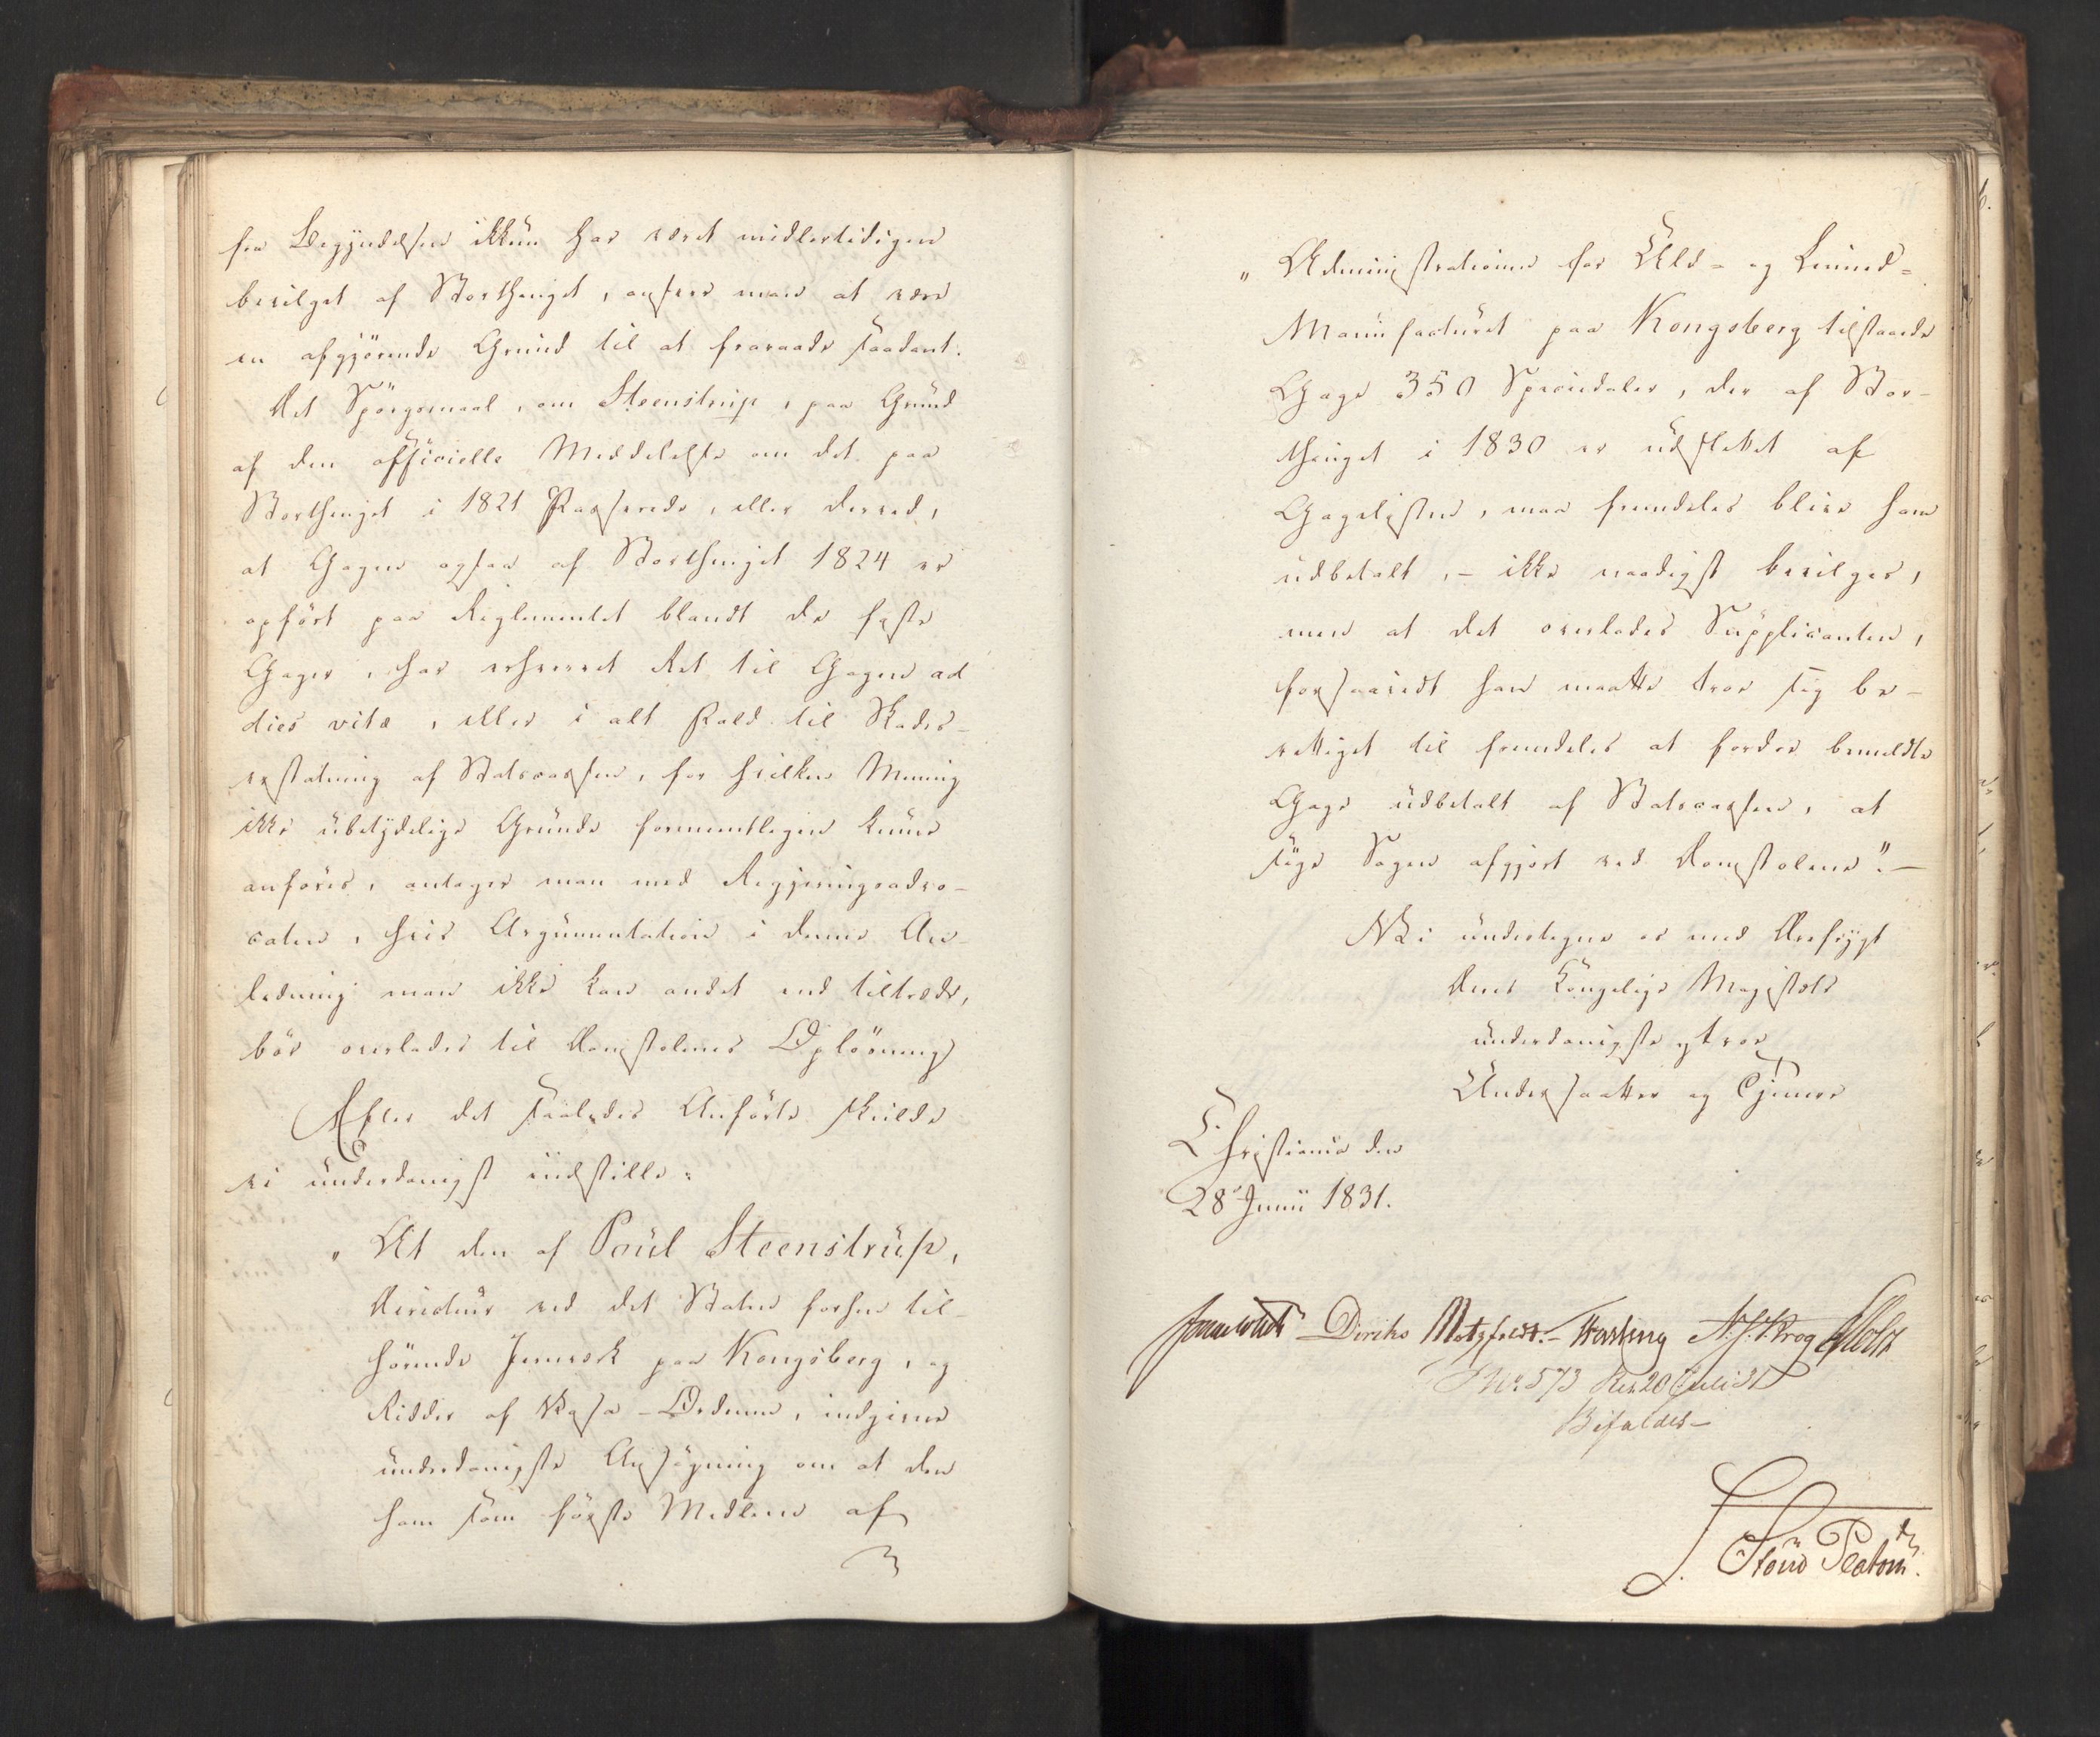 fra Begyndelsen ikkun har været midlertidigen
bevilget af Storthinget, ansees man at være
en afgjørende Grund til at fraraade saadant.
Det Spörgsmaal, om Steenstrup, paa Grund
af den officielle Meddelelse om det paa
Storthinget i 1821 Passerede, eller derved,
at Gagen ogsaa af Storthinget 1824 er
opført paa Reglementet blandt de faste
Gager, har erhvervet Ret til Gagen ad
dies vitæ, eller i alt Fald til Skades-
erstatning af Statscassen, for hvilken Mening
ikke übetydelige Grunde formeentligen kunne
anføres, antager man med Regjeringsadvo-
caten, hvis Argumentation i denne An-
ledning man ikke kan andet end tiltræde,
bør overlades til Domstolenes Oplösning
Efter det saaledes Anførte skulde
vi underdanigst indstille:
„At den af Poul Steenstrup,
Directeur ved det Staten forhen til-
hørende Jernværk paa Kongsberg, og
Ridder af Vasa-Ordenen, indgivne
underdanigste Ansögning om at den
ham som første Medlem af
„Administrationen for Uld- og Linned-
Manufacturet paa Kongsberg tilstaaede
Gage 350 Speciedaler, der af Stor-
thinget i 1830 er udslettet af
Gagelisten, maa fremdeles blive ham
udbetalt, – ikke naadigst bevilges,
men at det overlades Supplicanten,
forsaavidt han maatte troe sig be-
rettiget til fremdeles at fordre bemeldte
Gage udbetalt af Statscassen, at
søge Sagen afgjort ved Domstolene". –
Vi undertegne os med Ærefrygt
Deres Kongelige Majestæts
underdanigste og troe
Undersaatter og Tjenere
Christiania den
28de Junii 1831.
Diriks Motzfeldt. N. J. Krog Holst
No. 573 Res 20 Juli 31
Bifaldes –